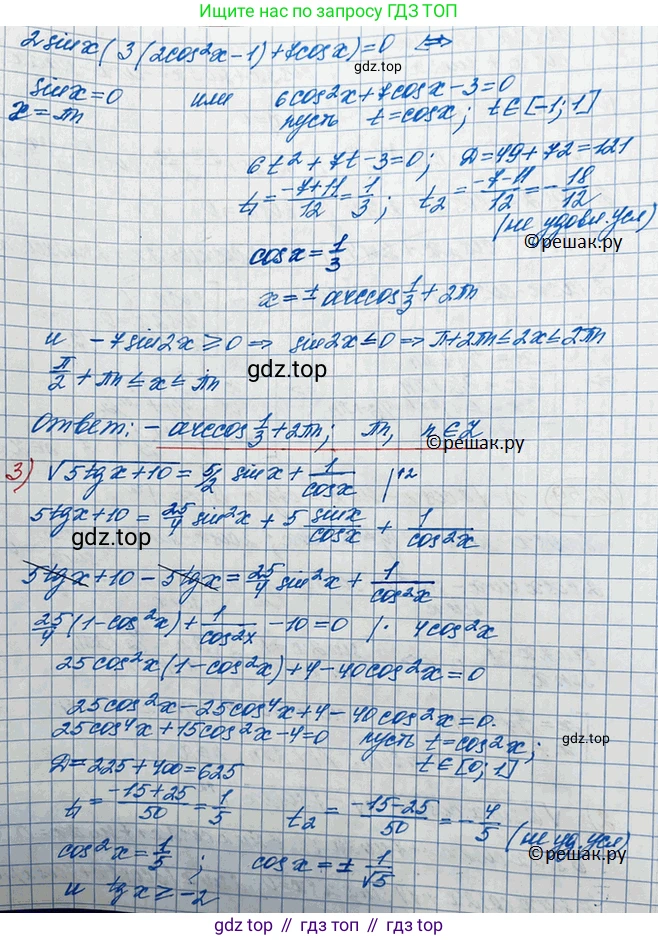 Ищите нас по запросу ГДЗ ТОП
2sinx(3(2cos²x-1)+7cosx)=0 ⟺
gdz.top
sinx=0 или 6cos²x+7cosx-3=0
x=πn пусть t=cosx; t∈[-1;1]
6t²+7t-3=0; D=49+72=121
t₁=(-7+11)/12=1/3; t₂=(-7-11)/12=-18/12
(не удовл. усл)
©решак.ру
cosx=1/3
x=±arccos 1/3+2πn
и -7sin2x≥0⇒ sin2x≤0⇒π+2πn≤2x≤2πn
гдз.top
π/2+πn≤x≤πn
Ответ: -arccos 1/3+2πn; πn, n∈Z
©решак.ру
3) √(5tgx+10)=5/2 sinx+1/cosx |↑2
5tgx+10=25/4 sin²x+5 sinx/cosx+1/cos²x
гдз.top
5tgx+10-5tgx=25/4 sin²x+1/cos²x
25/4(1-cos²x)+1/cos²x-10=0 |· 4cos²x
25cos²x(1-cos²x)+4-40cos²x=0
25cos²x-25cos⁴x+4-40cos²x=0.
25cos⁴x+15cos²x-4=0 пусть t=cos²x;
gdz.top
D=225+400=625 t∈[0;1]
t₁=(-15+25)/50=1/5 t₂=(-15-25)/50=-4/5 (не уд. усл)
©решак.ру
cos²x=1/5; cosx=±1/√5
и tgx≥-2
gdz.top // гдз.top // гдз.top